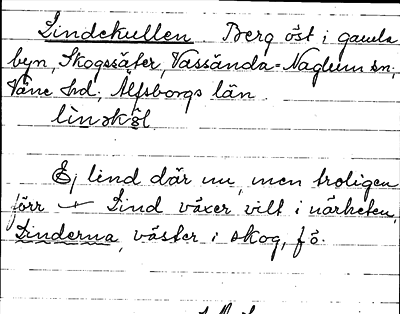 Lindekullen. Berg öst i gamla
byn, Skogssäter, Vassända-Naglum sn,
Väne hd, Älfsborgs län.
linəkəl
Ej lind där nu, men troligen
förr — Lind växer vilt i närheten,
Linderna, väster i skog, fö.